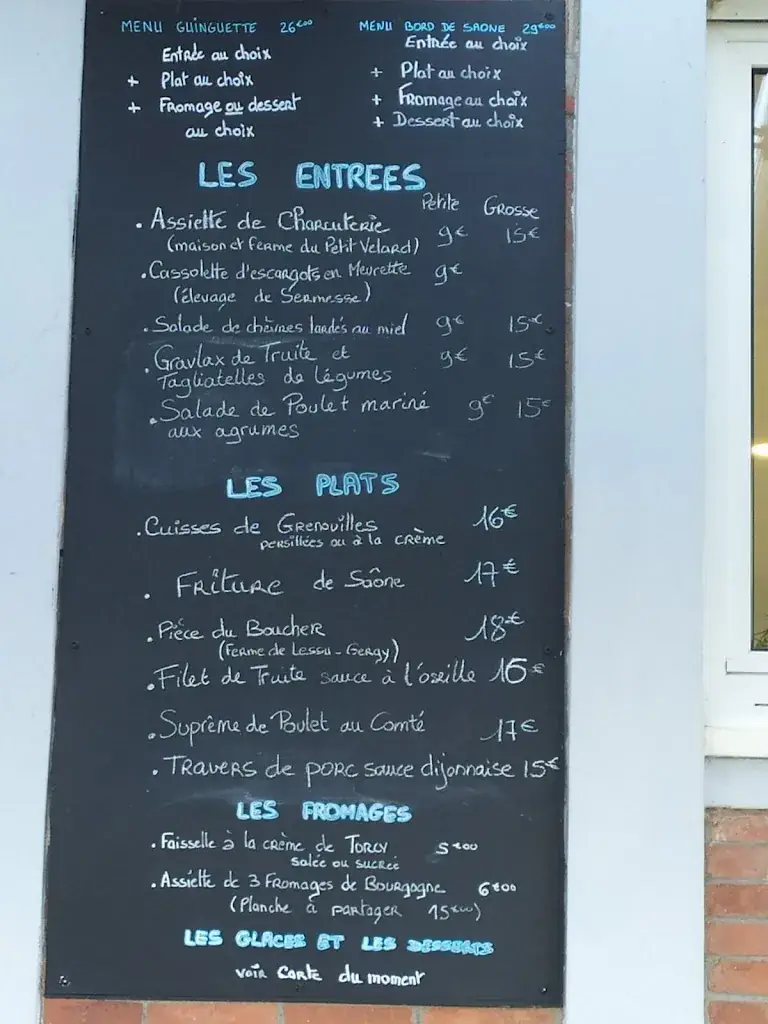 MENU GUINGUETTE 26€00
Entrée au choix
+ Plat au choix
+ Fromage ou dessert
au choix
MENU BORD DE SAONE 29€00
Entrée au choix
+ Plat au choix
+ Fromage au choix
+ Dessert au choix
LES ENTREES
Petite Grosse
. Assiette de Charcuterie 9€ 15€
(maison et Ferme du Petit Velard)
. Cassolette d'escargots en Meurette 9€
(élevage de Sermesse)
. Salade de chèvres lardés au miel 9€ 15€
. Gravlax de Truite et 9€ 15€
Tagliatelles de légumes
. Salade de Poulet mariné 9€ 15€
aux agrumes
LES PLATS
. Cuisses de Grenouilles 16€
persillées ou à la crème
. FRITURE de Saône 17€
. Pièce du Boucher 18€
(Ferme de Lessu - Gergy)
. Filet de Truite sauce à l'oseille 16€
. Suprême de Poulet au Comté 17€
. TRAVERS de porc sauce dijonnaise 15€
LES FROMAGES
. Faisselle à la crème de TORCY 5€00
salée ou sucrée
. Assiette de 3 Fromages de Bourgogne 6€00
(Planche à partager 15€00)
LES GLACES ET LES DESSERTS
voir Carte du moment